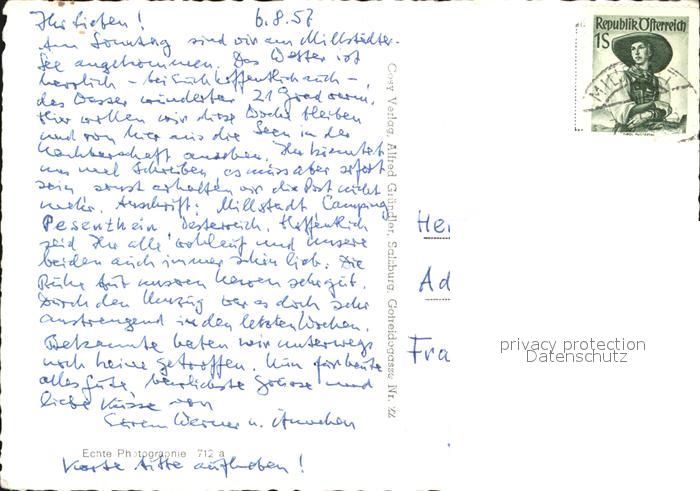 Ihr Lieben! 6.8.57
Am Sonntag sind wir am Millstädter-
See angekommen. Das Wetter ist
herrlich – bei Euch hoffentlich auch –,
das Wasser wunderbar 21 Grad warm.
Hier wollen wir diese Woche bleiben
und von hier aus die Seen in der
Nachbarschaft ansehen. Ihr könntet
uns mal schreiben es müss aber sofort
sein sonst erhalten wir die Post nicht
mehr. Anschrift: Millstadt Camping
Pesenthein, Oesterreich. Hoffentlich
seid Ihr alle wohlauf und unsere
beiden auch immer schön lieb. Die
Ruhe tut unseren Nerven sehr gut.
Durch den Umzug war es doch sehr
anstrengend in den letzten Wochen.
Bekannte haben wir unterwegs
noch keine getroffen. Nun für heute
alles Gute, herzlichste Grüsse und
liebe Küsse von
Euren Werner u. Ännchen
Echte Photographie 712 a
Karte bitte aufheben!
Cosy Verlag, Alfred Gründler, Salzburg, Getreidegasse Nr. 22
Republik Österreich
1S
He
Ad
Fra
privacy protection
Datenschutz